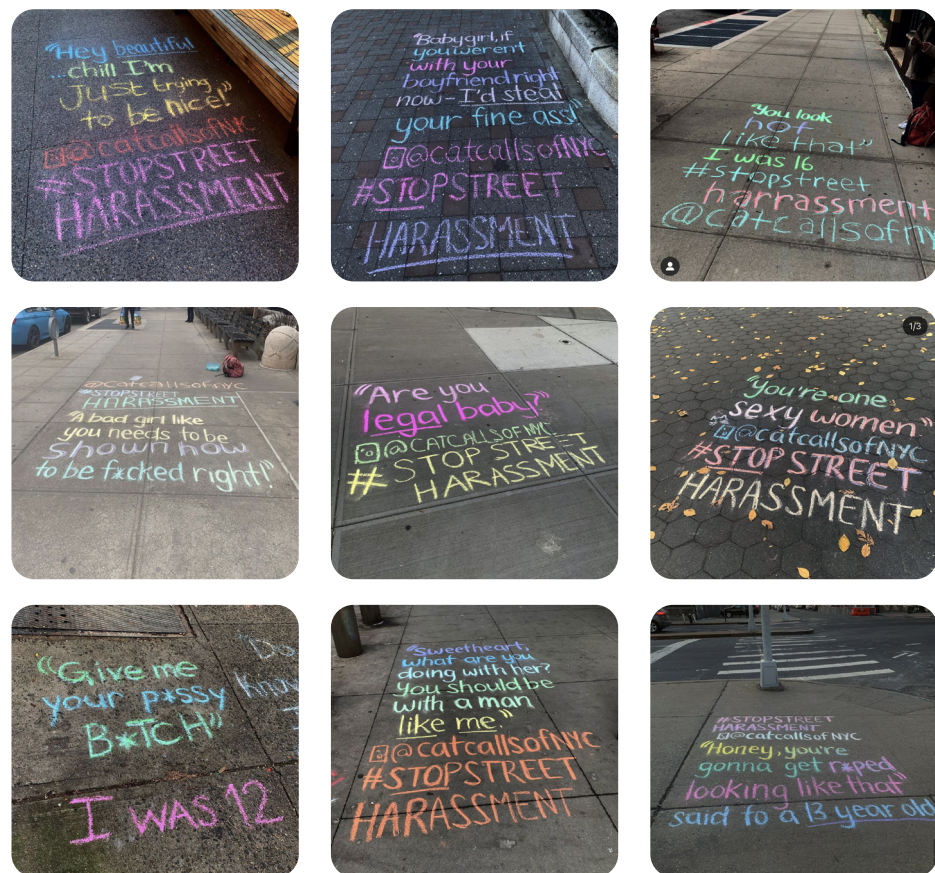 "Hey beautiful
...chill I'm
JUST trying
to be nice!"
@catcallsofNYC
#STOPSTREET
HARASSMENT
"Babygirl, if
you weren't
with your
boyfriend right
now - I'd steal
your fine ass!"
@catcallsofNYC
#STOPSTREET
HARASSMENT
"You look
hot
like that"
I was 16
#stopstreet
harrassment
@catcallsofny
@catcallsofNYC
#STOPSTREET
HARASSMENT
"A bad girl like
you needs to be
shown how
to be f*cked right!"
"Are you
legal baby?"
@CATCALLSOFNYC
# STOP STREET
HARASSMENT
1/3
"You're one
sexy women"
@catcallsofNYC
#STOP STREET
HARASSMENT
"Give me
your p*ssy
B*TCH"
I WAS 12
"Sweetheart,
what are you
doing with her?
You should be
with a man
like me."
@catcallsofNYC
#STOPSTREET
HARASSMENT
#STOPSTREET
HARASSMENT
@catcallsofNYC
"Honey, you're
gonna get r*ped
looking like that"
said to a 13 year old